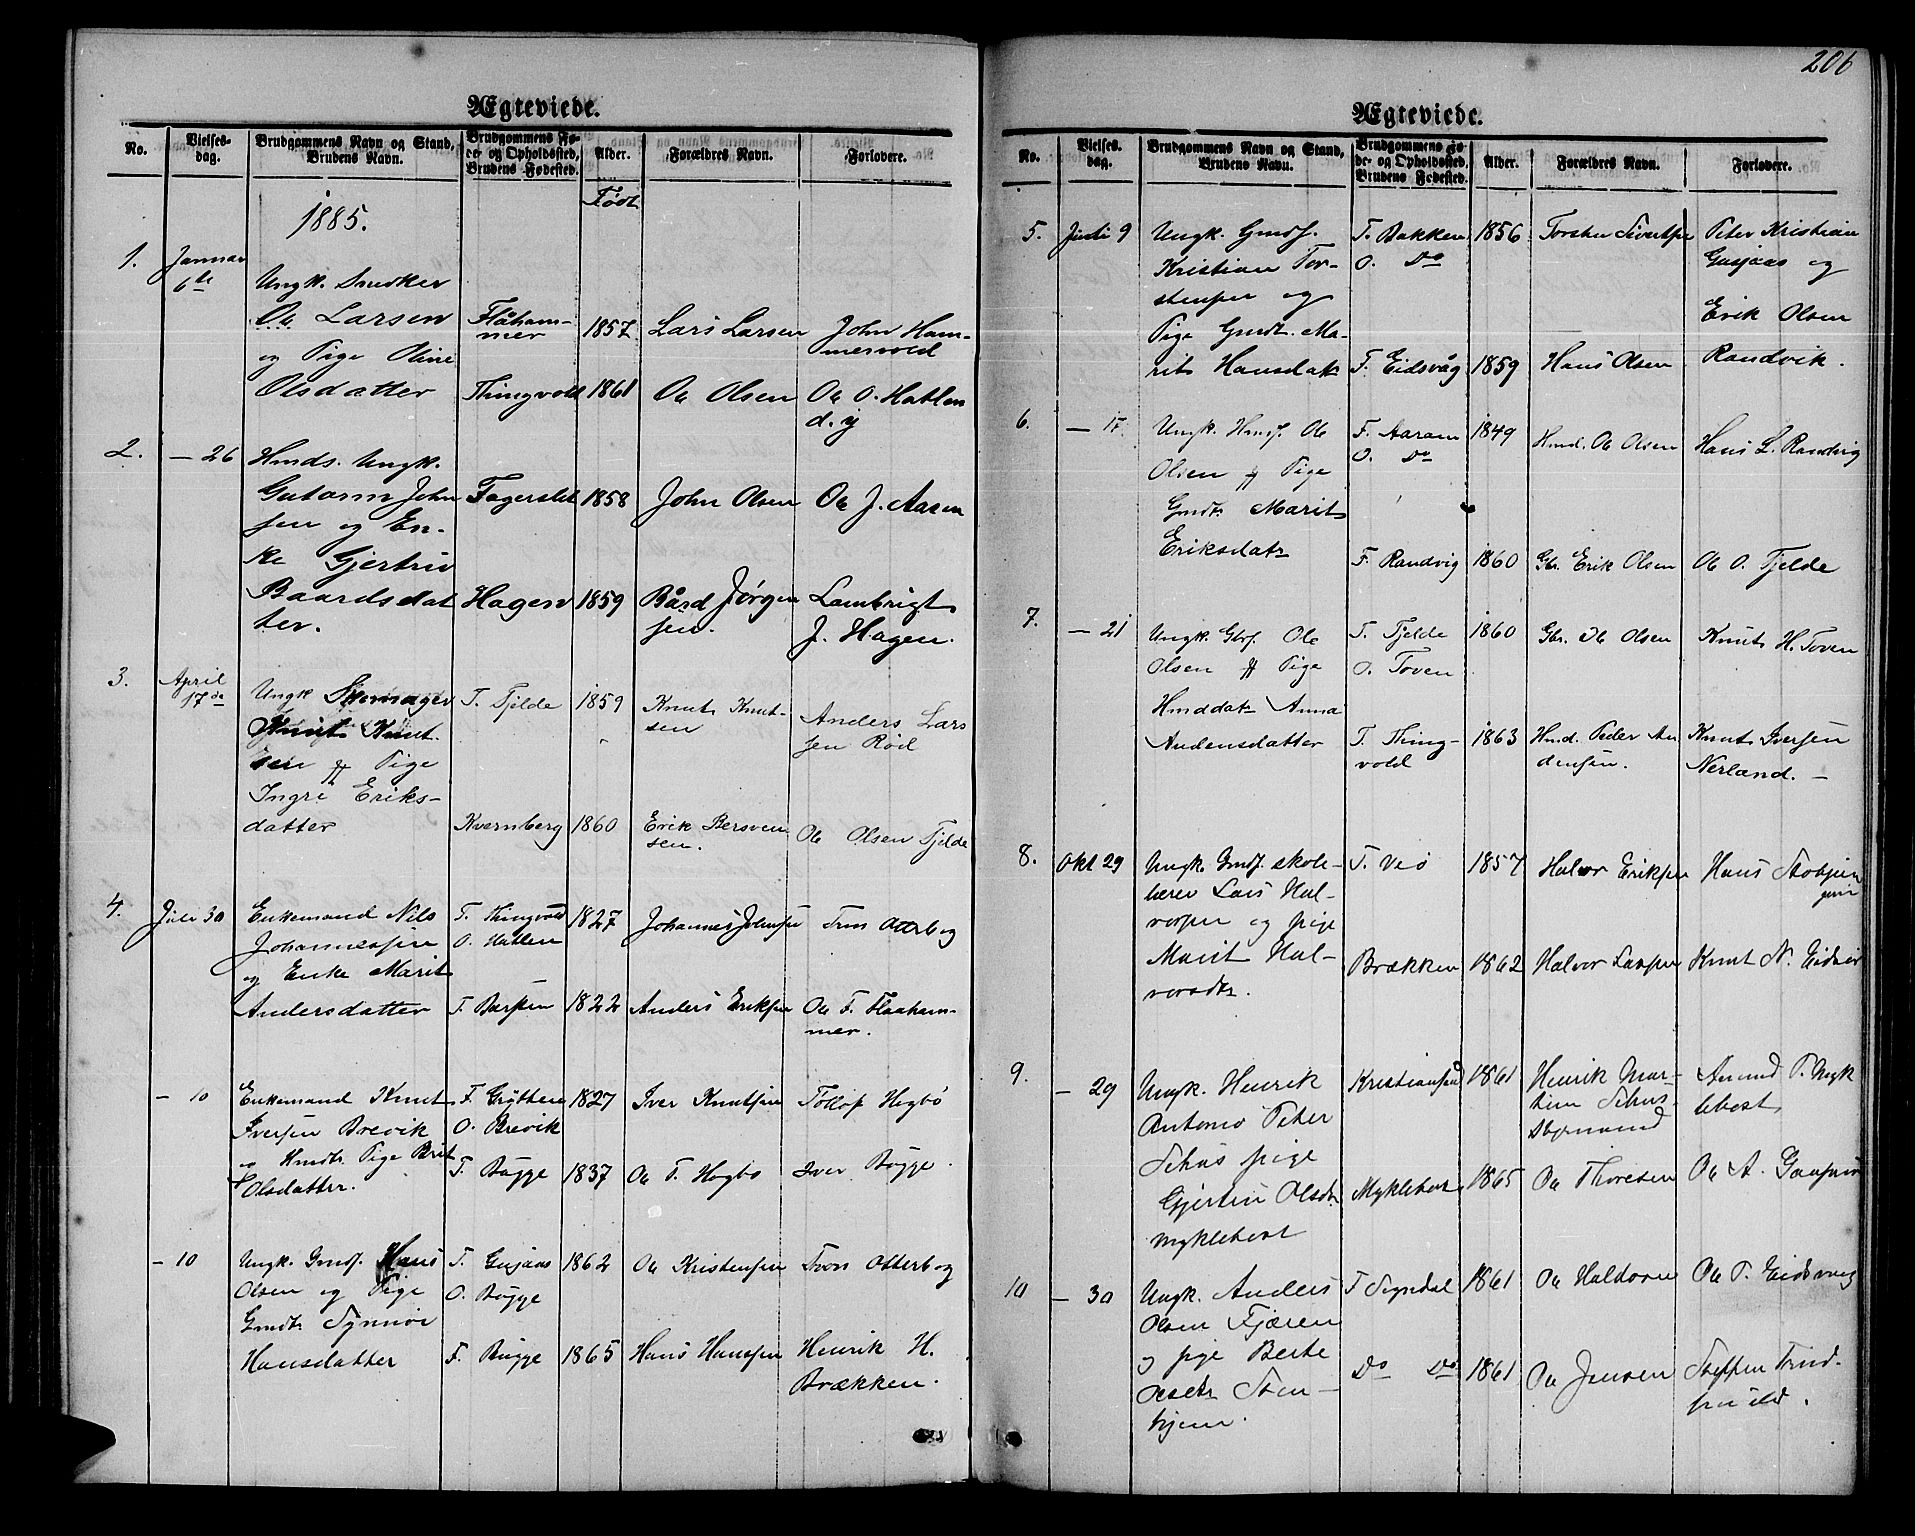 206
Ægteviede.
No.
Vielses-
dag.
Brudgommens Navn og Stand,
Brudens Navn.
Brudgommens Fø-
de- og Opholdssted,
Brudens Fødested.
Alder.
Forældres Navn.
Forlovere.
Født
1885.
1.
Januar
6te
Ungk. Snedker
Ole Larsen
og Pige Oline
Olsdatter
Flåham-
mer
1857
Lars Larsen
John Ham-
mervold
Thingvold
1861
Ole Olsen
Ole O. Hatlen
d. y
2.
– 26
Hmds. Ungk.
Gutorm John
sen og En-
ke Gjertru
Baardsdat
ter.
Fagerslet
1858
John Olsen
Ole J. Aasen
Hagen
1859
Bård Jørgen
sen.
Lambrigt
J. Hagen.
3.
April
17de
Ungk Skomager
Knut Knut
sen & Pige
Ingri Eriks-
datter
F. Tjelde
1859
Knut Knut-
sen
Anders Lars
sen Rød
Kvernberg
1860
Erik Bersven
sen.
Ole Olsen Tjelde
4.
Juli 30
Enkemand Nils
Johannessen
og Enke Marit
Andersdatter
F. Thingvold
O. Hatlen
1827
Johannes Johnsen
Tron Otterbog
F.
1822
Anders Eriksen
Ole F. Flaaham-
mer.
– 10
Enkemand Knut
Iversen Brevik
og Hmdtr. Pige Brit
Olsdatter.
F. Grøttem
O. Brevik
1827
Iver Knutsen
Tollof Hegbø
F. Bugge
1837
Ole T. Hegbø
Iver Bugge.
– 10
Ungk. Gmds. Hans
Olsen og Pige
Gmdtr. Synnøi
Hansdatter
F. Gusjaas
O. Bugge
1862
Ole Kristensen
Tron Otterbog
F. Bugge
1865
Hans Hanssen
Henrik H.
Brækken.
Ægteviede.
No.
Vielses-
dag.
Brudgommens Navn og Stand,
Brudens Navn.
Brudgommens Fø-
de- og Opholdssted,
Brudens Fødested.
Alder.
Forældres Navn.
Forlovere.
5.
Juli 9
Ungk. Gmds.
Kristian Tor-
stensen og
Pige Gmdtr. Ma-
rit Hansdatr
F. Bakken
O. Do
1856
Torsten Sivertsen
Peter Kristian
Gusjaas og
Erik Olsen
Randvik.
F. Eidsvåg
1859
Hans Olsen
6.
– 17.
Ungk. Hmds. Ole
Olsen & Pige
Gmdtr. Marit
Eriksdatr
F. Aaram
O. Do
1849
Hmd. Ole Olsen
Hans L. Randvig
F. Randvig
1860
Gbr. Erik Olsen
Ole O. Tjelde
7.
– 21
Ungk. Gbrs. Ole
Olsen & Pige
Hmddatr Anna
Andensdatter
F. Tjelde
O. Toven
1860
Gbr. Ole Olsen
Knut H. Toven
F. Thing-
vold
1863
Hmd. Peder An
densen.
Knut Iversen
Nerland. –
8.
Okt 29
Ungk. Gmds. skole-
lærer Lars Hal-
vorsen og pige
Marit Hal-
vorsdtr.
F. Veø
1857
Halvor Eriksen
Hans
Brækken
1862
Halvor Larsen
Knut N.
9.
– 29
Ungk. Henrik
Antonio Peter
Sehus pige
Gjertru Olsdtr
Myklebost
Kristiansund
1861
Henrik Mar-
tin Sehus
Amund P. Myk
lebost
Myklebost
1865
Ole Thoresen
Ole A.
10
– 30
Ungk. Anders
Olsen Fjæren
og pige Berte
Olsdtr Sten-
hjem.
1861
Ole Haldorsen
Ole P. Eidsvaag
Do Do
1861
Ole Jensen
Steffen